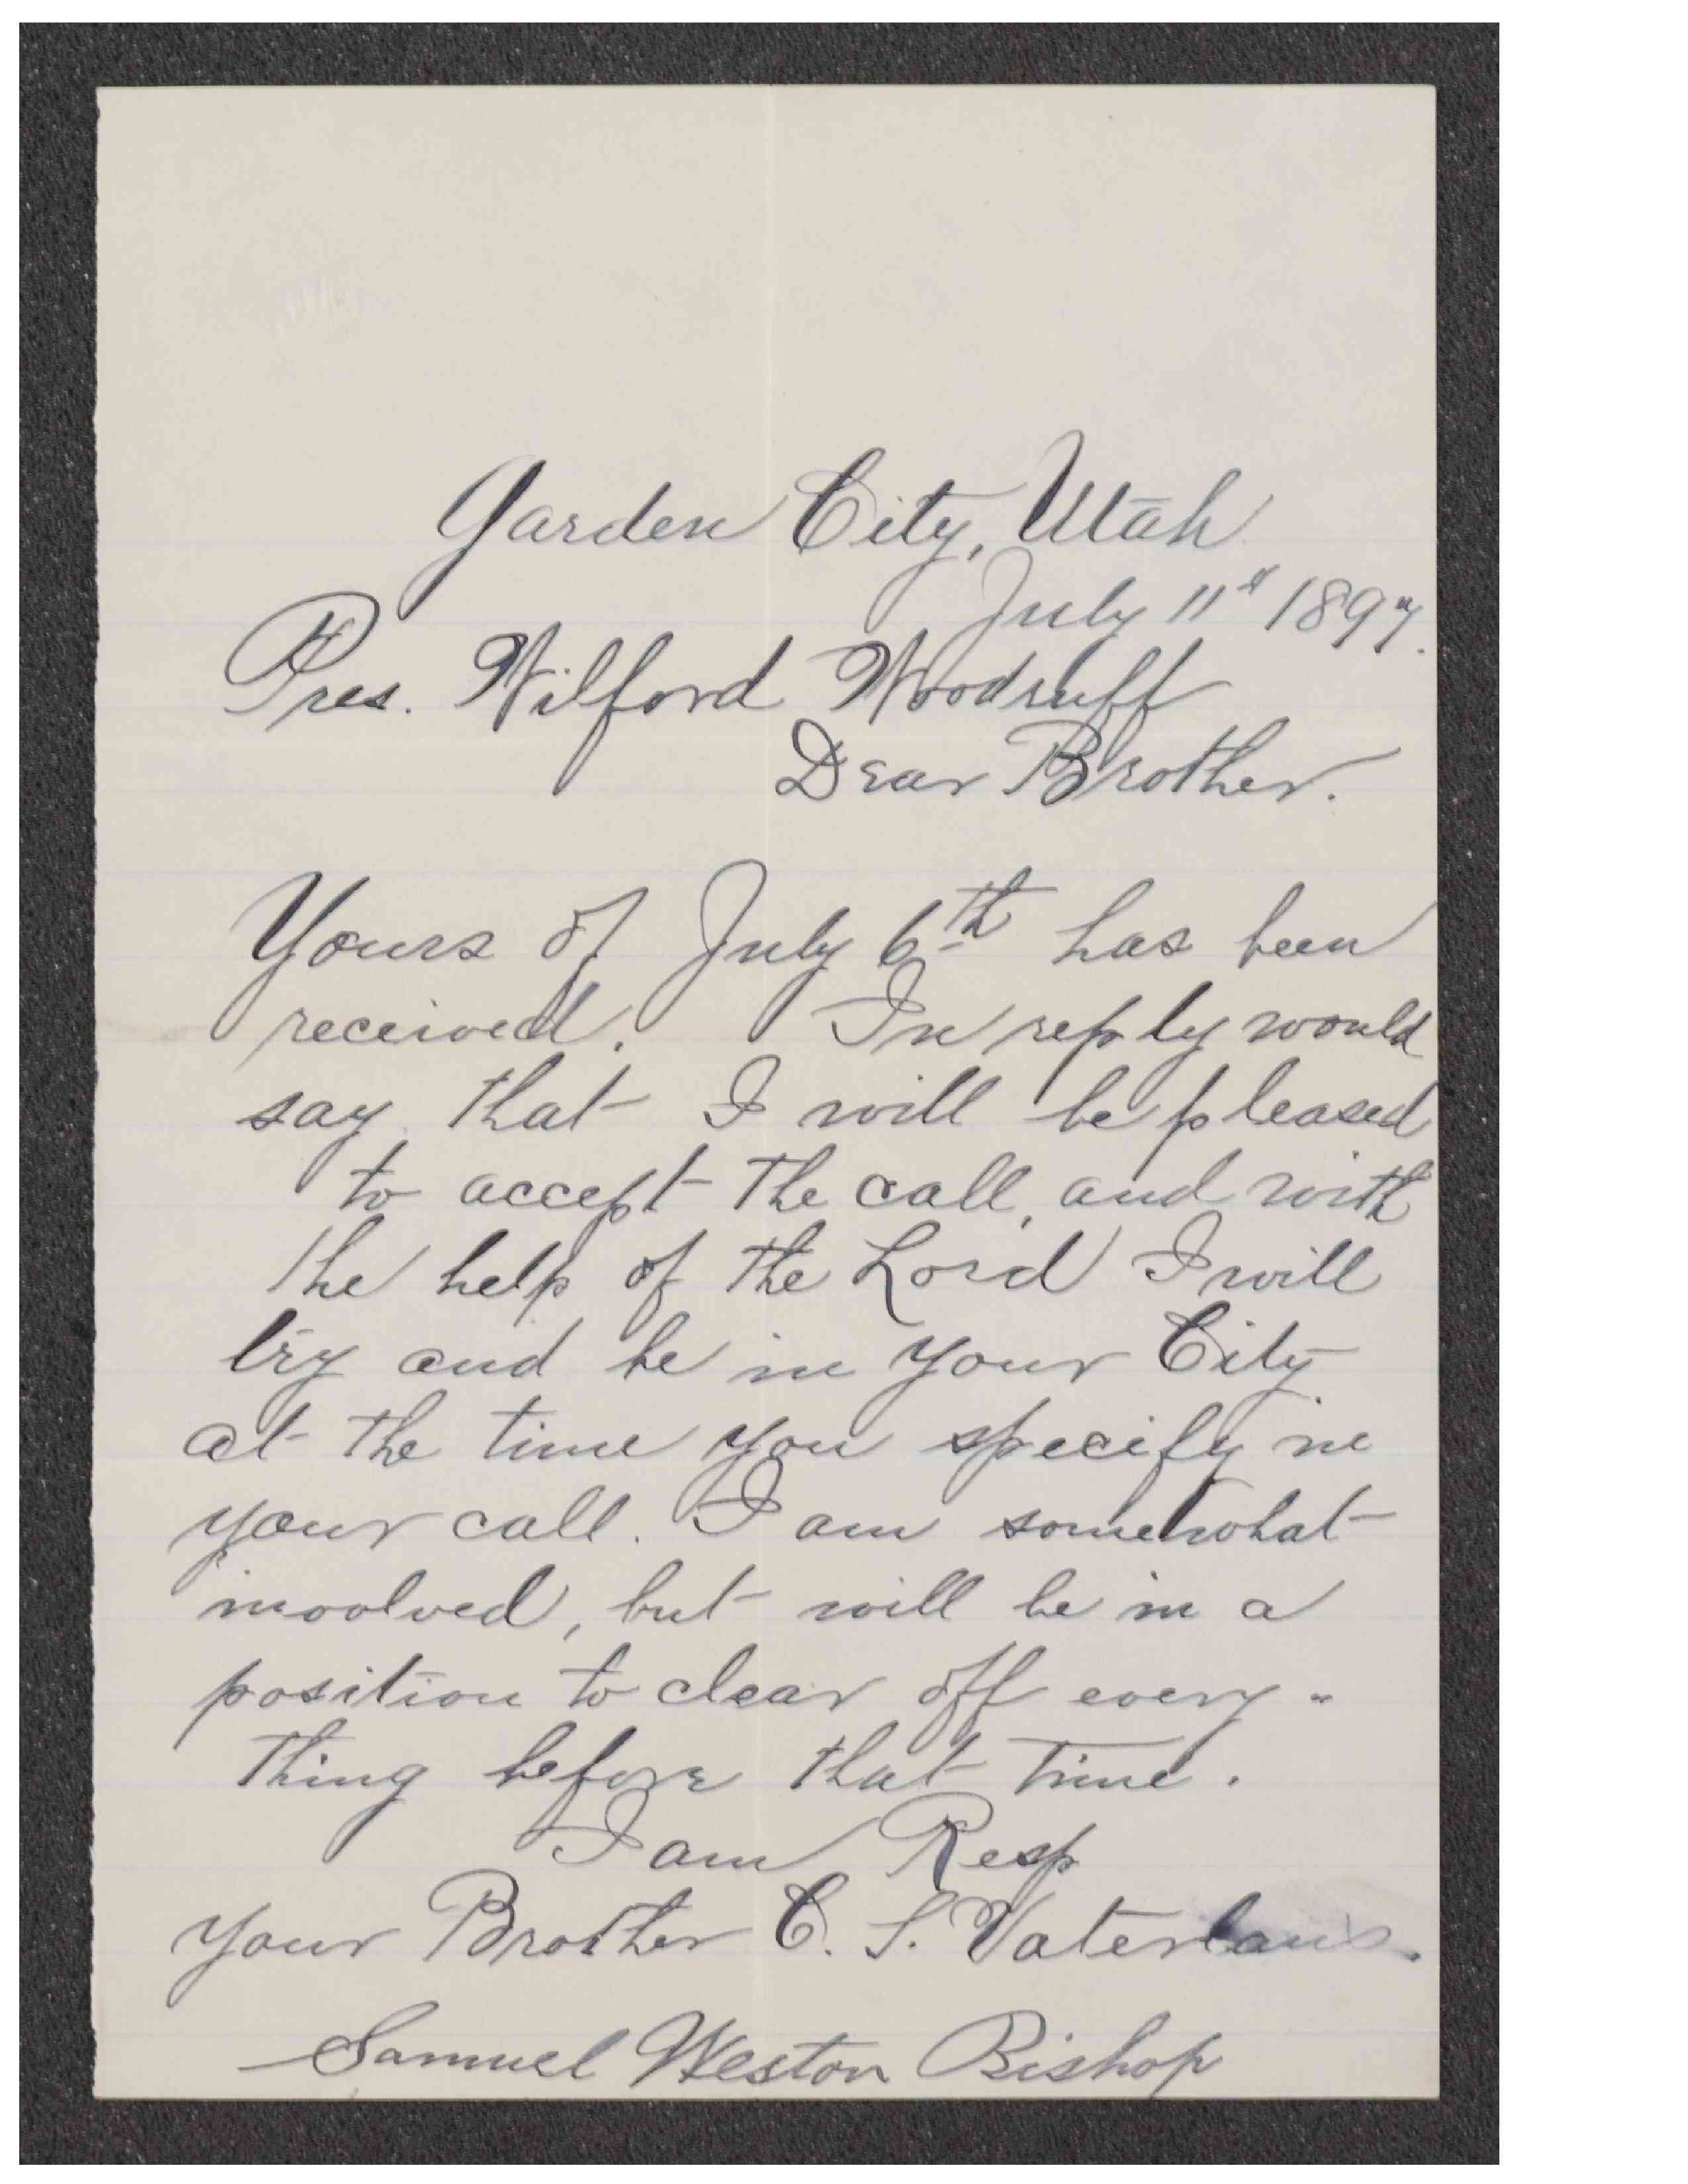 Garden City, Utah
July 11th 1897.
Pres. Wilford Woodruff
Dear Brother.
Yours of July 6th has been
received. In reply would
say that I will be pleased
to accept the call, and with
the help of the Lord I will
try and be in your City
at the time you specify in
your call. I am somewhat
involved, but will be in a
position to clear off every-
thing before that time.
I am Resp
your Brother C. S. Vaterlaus.
Samuel Weston Bishop